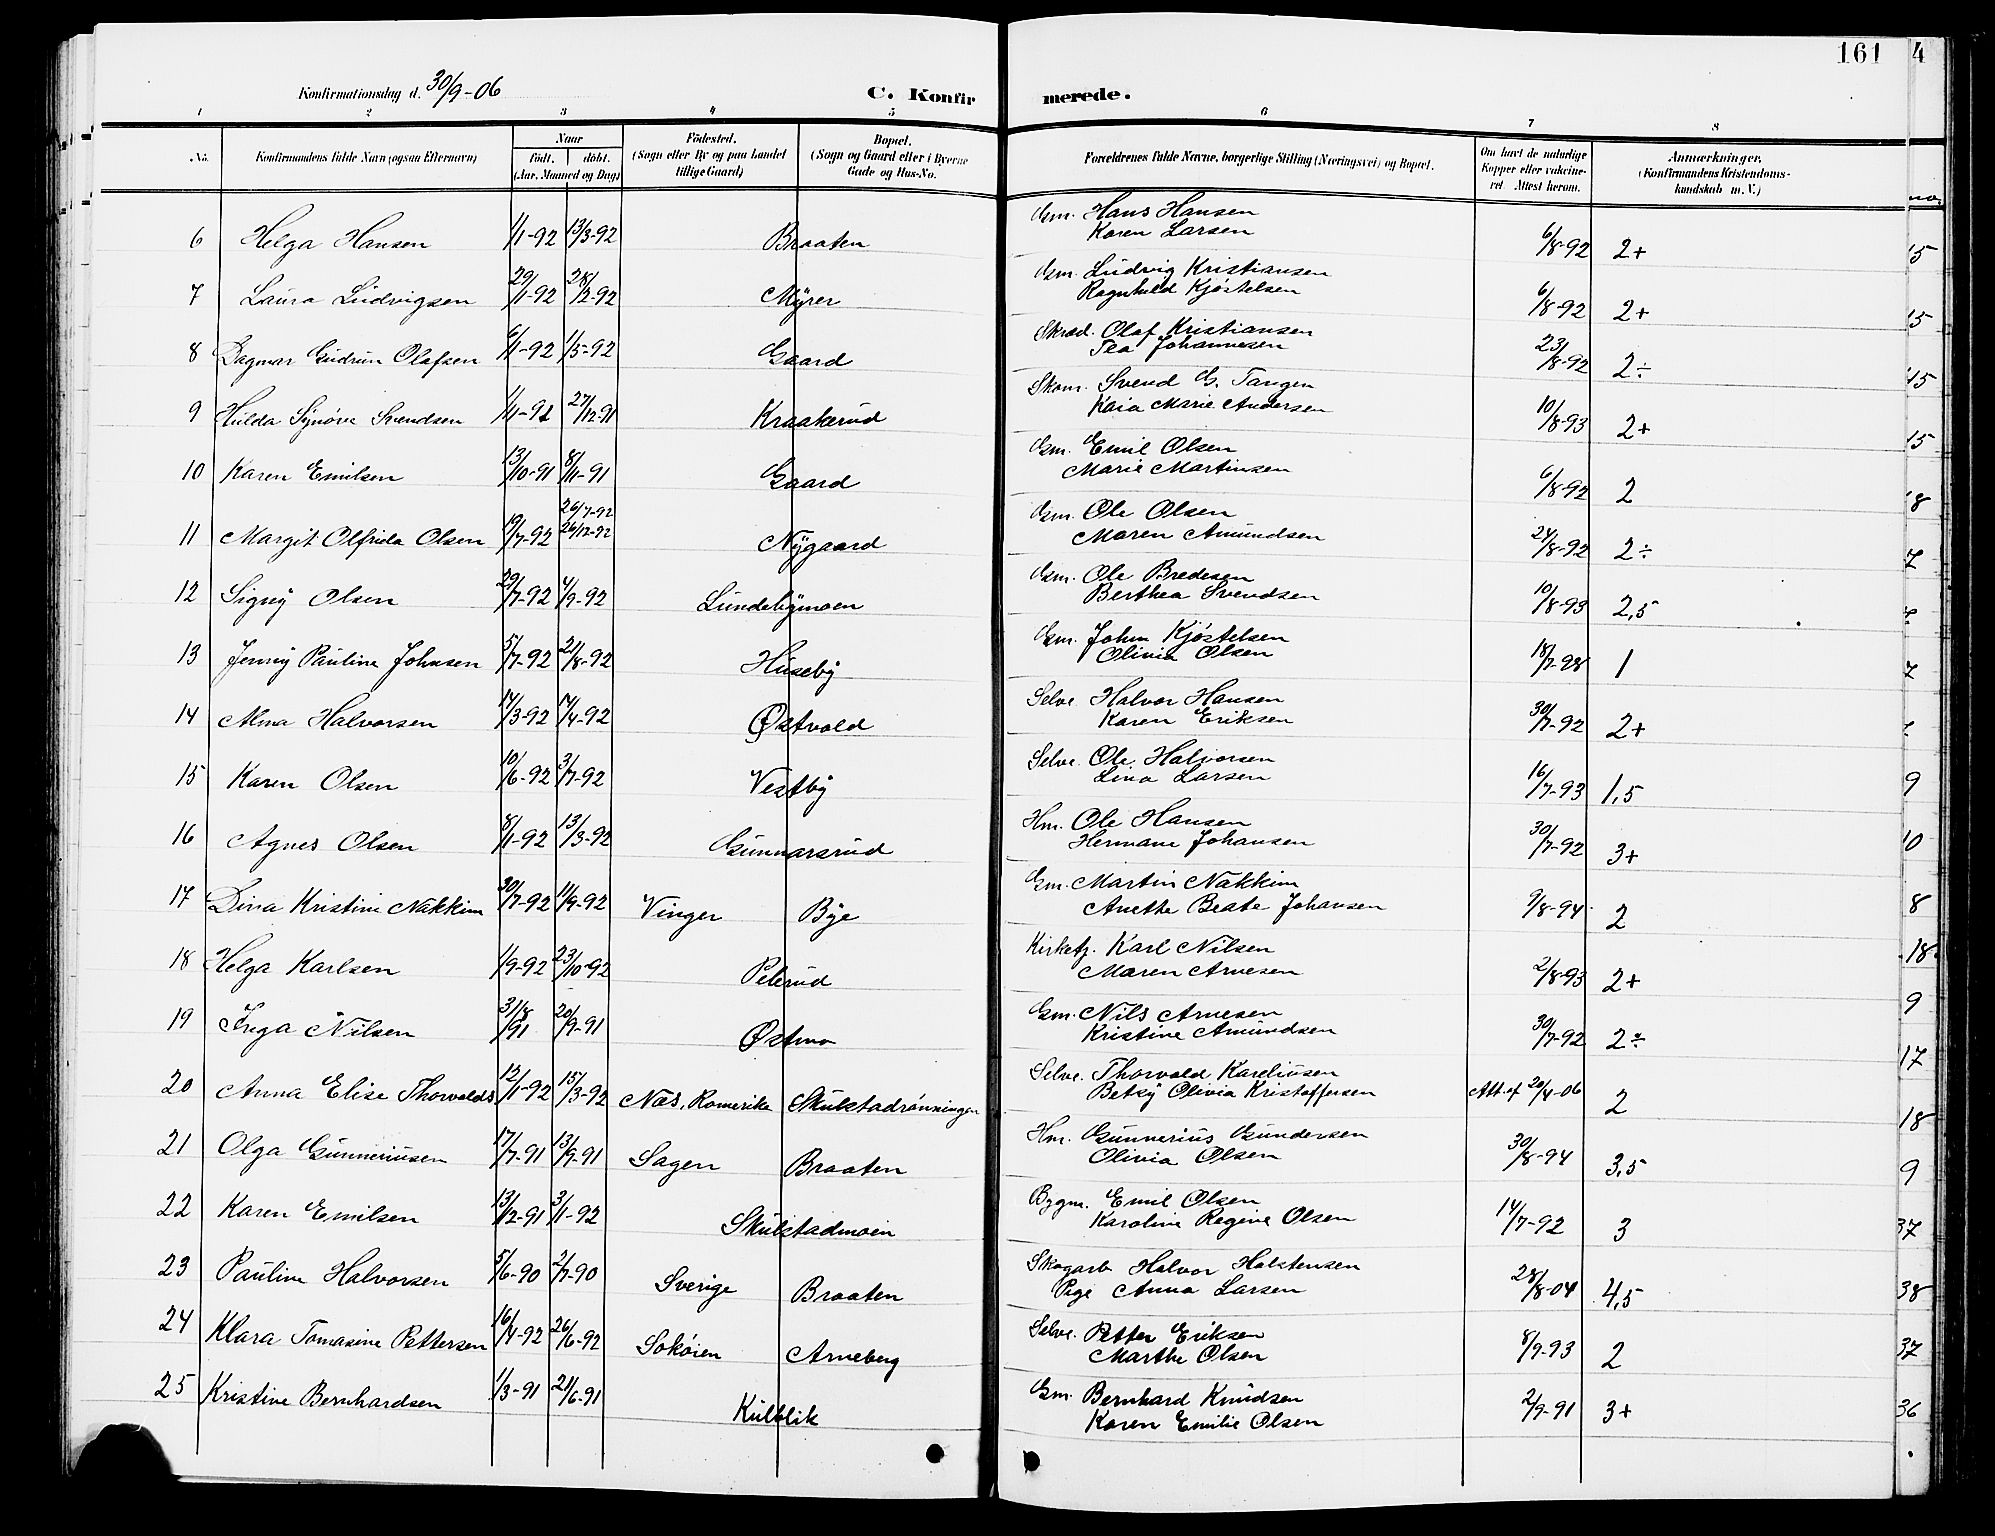 161
4
Konfirmationsdag d. 30/9-06
C. Konfir merede.
1 2 3 4 5 6 7 8
No. Konfirmandens fulde Navn (ogsaa Efternavn) Naar født. døbt. (Aar, Maaned og Dag) Fødested. (Sogn eller By og paa Landet tillige Gaard) Bopæl. (Sogn og Gaard eller i Byerne Gade og Hus-No. Forældrenes fulde Navne, borgerlige Stilling (Næringsvei) og Bopæl. Om havt de naturlige Kopper eller vakcineret. Attest herom. Anmærkninger. (Konfirmandens Kristendomskundskab m. V.)
6 Helga Hansen 1/1-92 13/3-92 Braaten Gm. Hans Hansen
Karen Larsen 6/8-92 2+
7 Laura Ludvigsen 29/1-92 28/2-92 Myrer Gm. Ludvig Kristiansen
Ragnhild Kjøstelsen 6/8-92 2+
8 Dagmar Gudrun Olafsen 6/1-92 1/5-92 Gaard Skræd. Olaf Kristiansen
Tea Johannesen 23/8-92 2÷
9 Hilda Synøve Svendsen 1/11-91 27/12-91 Kraakerud Skom. Svend G. Tangen
Kaia Marie Andersen 10/8-93 2+
10 Karen Emilsen 13/10-91 8/11-91 Gaard Gm. Emil Olsen
Marie Martinsen 6/8-92 2
11 Margit Olfrida Olsen 19/7-92 26/7-92
26/12-92 Nygaard Gm. Ole Olsen
Maren Amundsen 24/8-92 2÷
12 Signy Olsen 29/7-92 4/9-92 Lundebymoen Gm. Ole Bredesen
Berthea Svendsen 10/8-93 2,5
13 Jenny Pauline Johnsen 5/7-92 21/8-92 Huseby Gm. John Kjøstelsen
Olivia Olsen 18/7-98 1
14 Alma Halvorsen 14/3-92 17/4-92 Østvold Selve. Halvor Hansen
Karen Eriksen 30/7-92 2+
15 Karen Olsen 10/6-92 3/7-92 Vestby Selve. Ole Halvorsen
Lina Larsen 16/7-93 1,5
16 Agnes Olsen 8/1-92 13/3-92 Gunnarsrud Hm. Ole Hansen
Hermane Johansen 30/7-92 3+
17 Dina Kristine Nakkim 30/7-92 11/9-92 Vinger Bye Gm. Martin Nakkim
Anethe Beate Johansen 9/8-94 2
18 Helga Karlsen 1/9-92 23/10-92 Pelerud Kirketj. Karl Nilsen
Maren Arnesen 2/8-93 2+
19 Inga Nilsen 31/8/91 20/9-91 Østmo Gm. Nils Arnesen
Kristine Amundsen 30/7-92 2÷
20 Anna Elise Thorvalds 12/1-92 15/3-92 Næs, Romerike Skulstadrønningen Selve. Thorvald Kareliusen
Betsy Olivia Kristoffersen Att. af 20/4-06 2
21 Olga Gunneriusen 17/7-91 13/9-91 Sagen Braaten Hm. Gunnerius Gundersen
Olivia Olsen 30/8-94 3,5
22 Karen Emilsen 13/12-91 3/1-92 Skulstadmoen Bygm. Emil Olsen
Karoline Regine Olsen 14/7-92 3
23 Pauline Halvorsen 5/6-90 2/7-90 Sverige Braaten Skogarb Halvor Halstensen
Pige Anna Larsen 28/8-04 4,5
24 Klara Tomasine Pettersen 16/4-92 26/6-92 Sokøien Arneberg Selve. Petter Eriksen
Marthe Olsen 8/9-93 2
25 Kristine Bernhardsen 1/3-91 21/6-91 Kulblik Gm. Bernhard Knudsen
Karen Emilie Olsen 2/9-91 3+